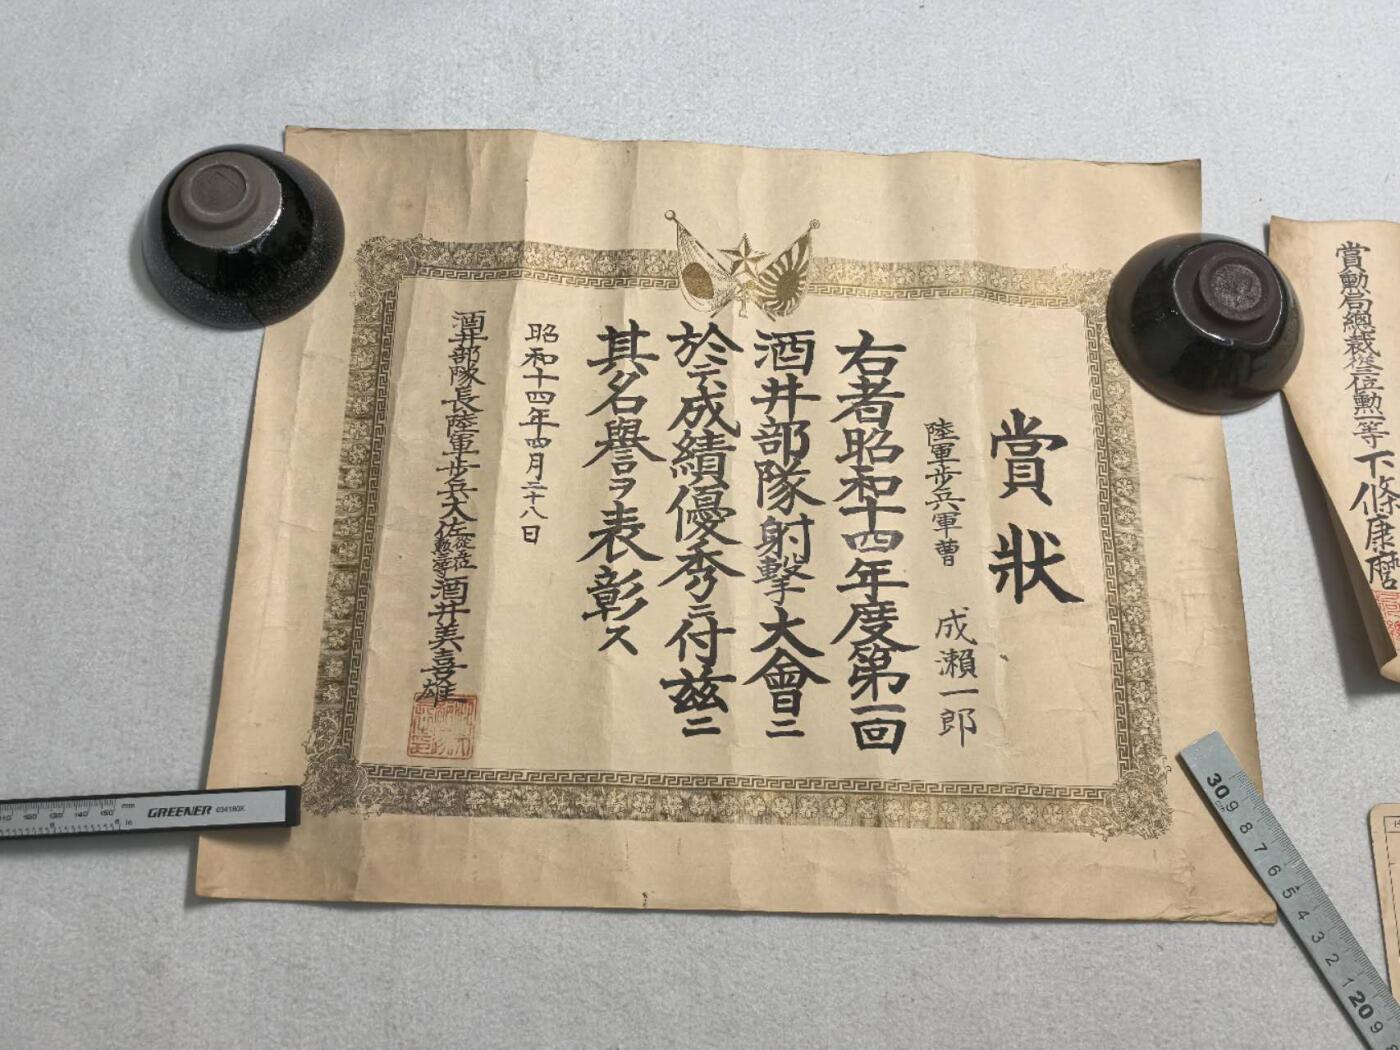 賞狀
陸軍步兵軍曹 成瀨一郎
右者昭和十四年度第一回
酒井部隊射擊大會ニ
於テ成績優秀ニ付茲ニ
其名譽ヲ表彰ス
昭和十四年四月二十八日
酒井部隊長陸軍步兵大佐 酒井美喜雄
賞勳局總裁 位勳一等下條康麿
GREENER
mm
in
30
9
8
7
6
5
4
3
2
1
20
9